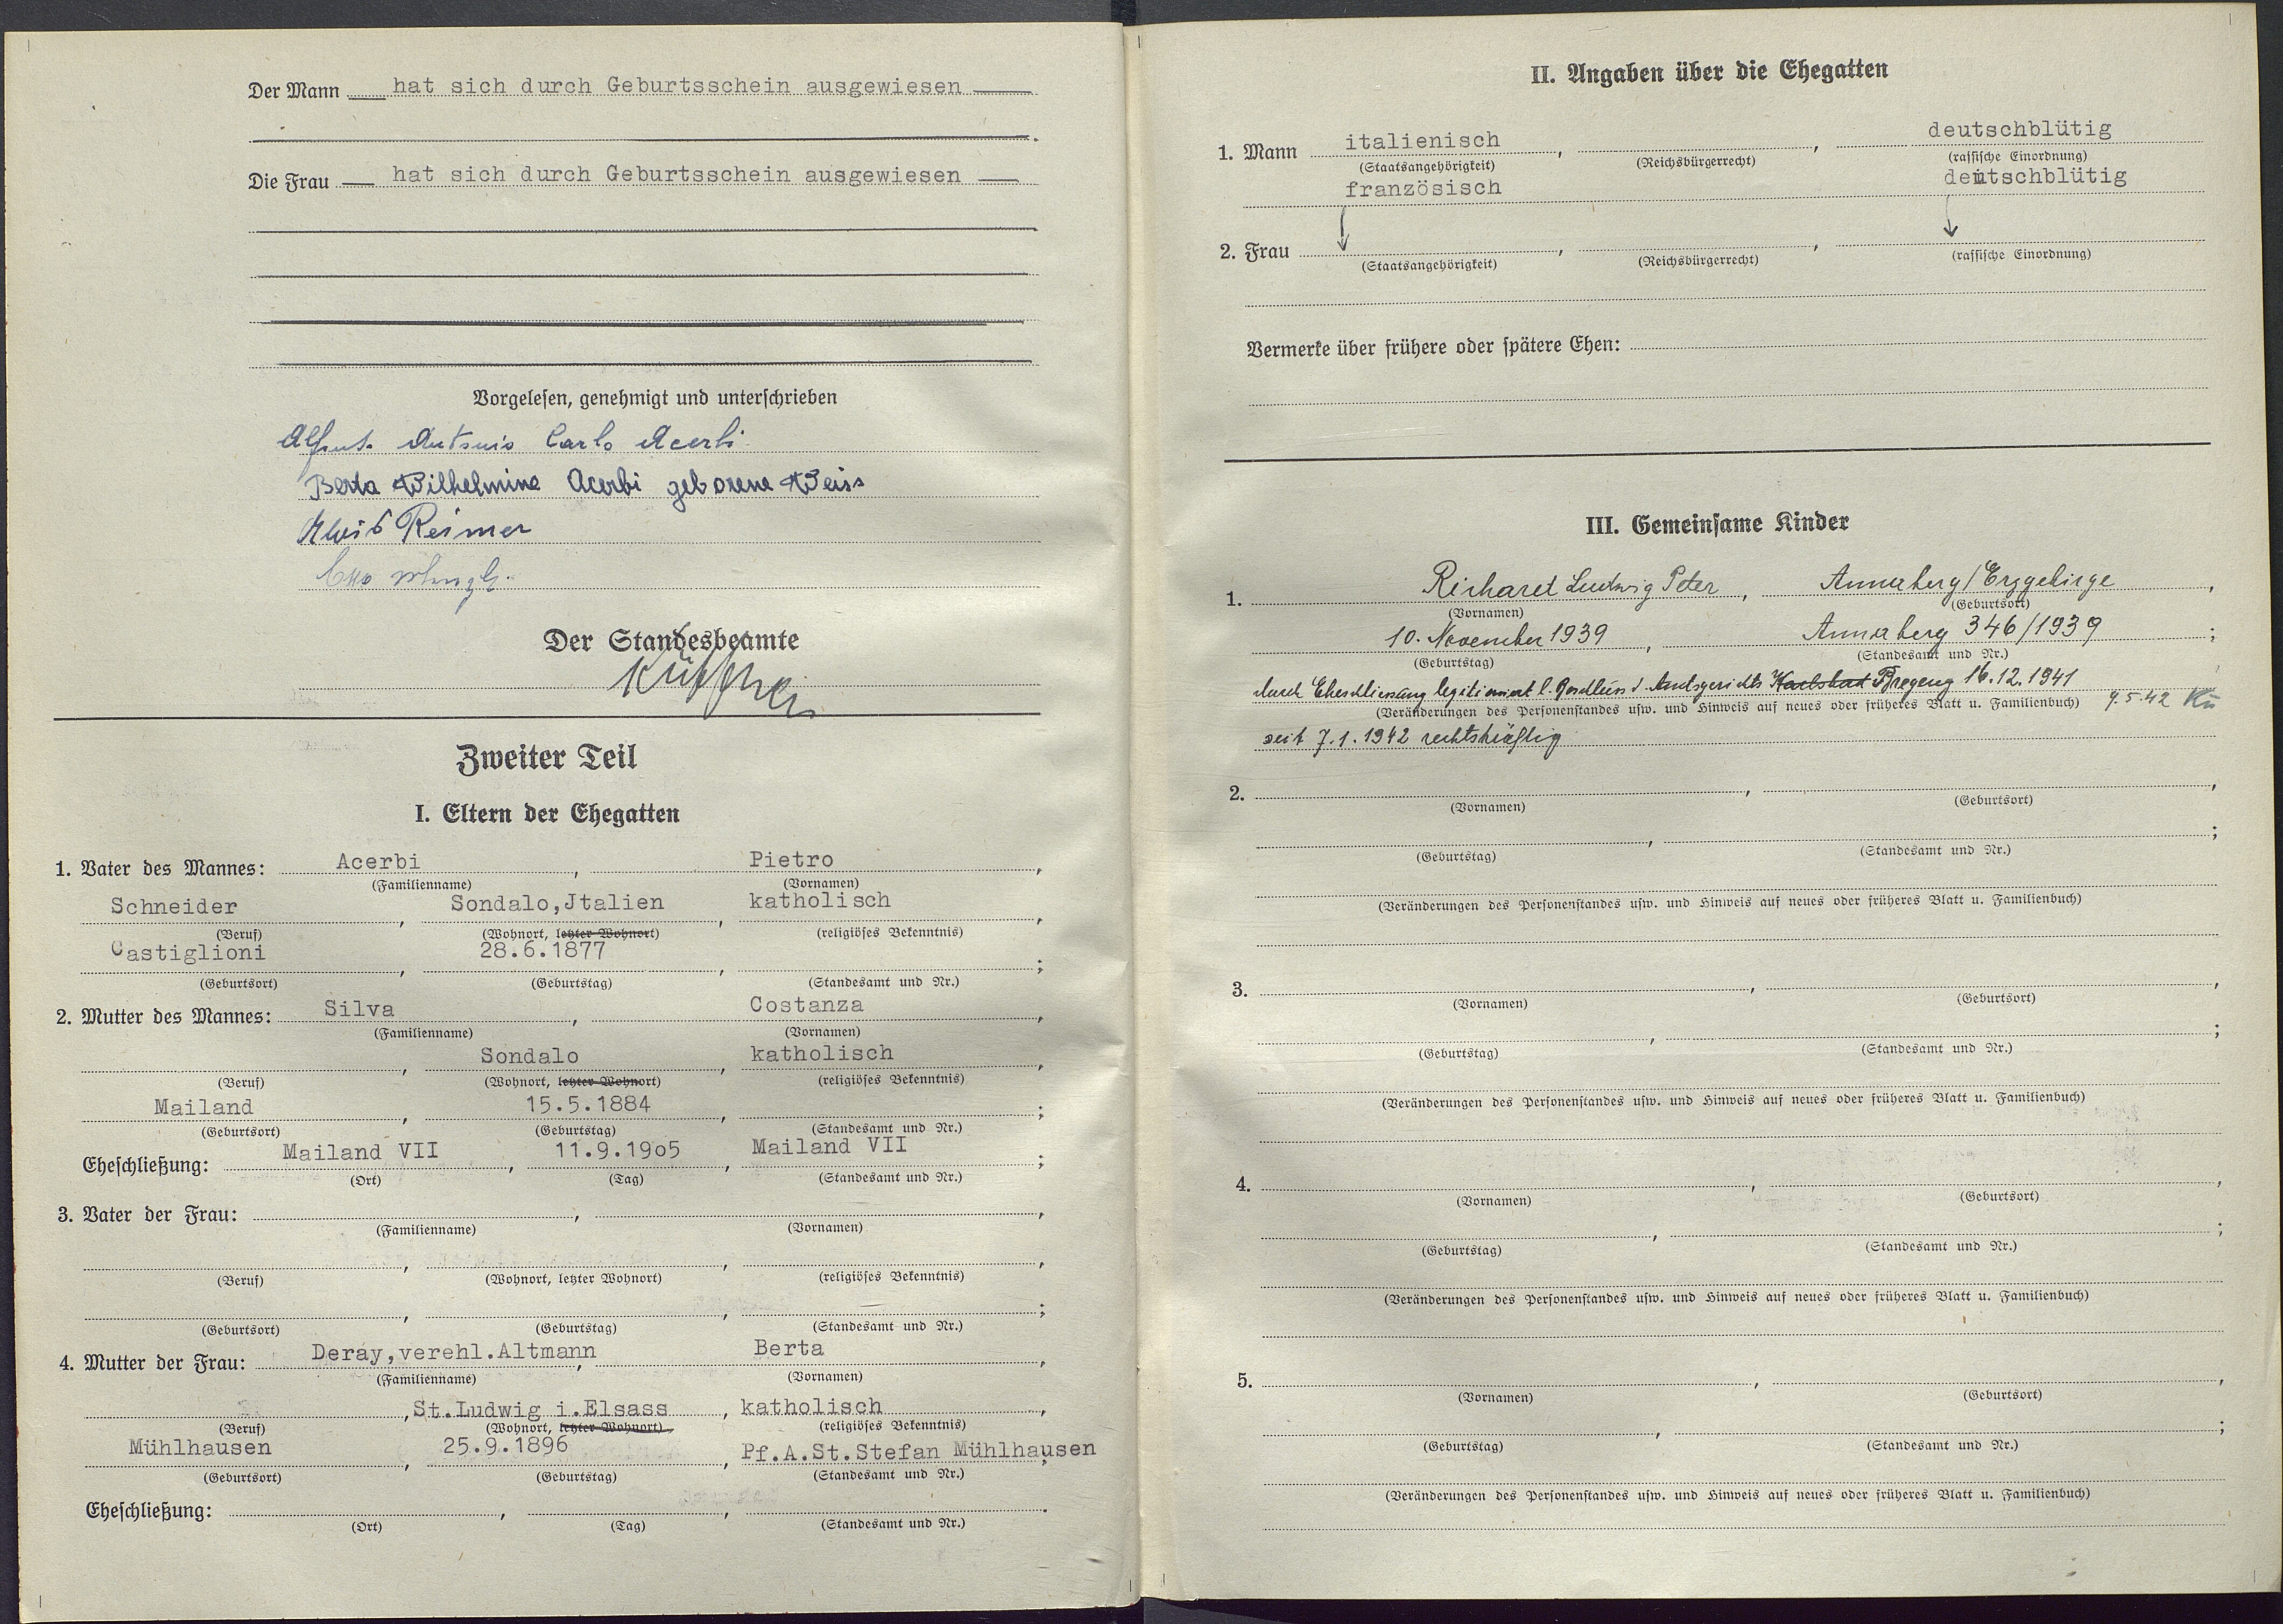 Der Mann hat sich durch Geburtsschein ausgewiesen
Die Frau hat sich durch Geburtsschein ausgewiesen
Vorgelesen, genehmigt und unterschrieben
Antonio Carlo Acerbi
Berta Wilhelmine Acerbi geborene Weiss
Alois Reimer
Der Standesbeamte
Zweiter Teil
I. Eltern der Ehegatten
1. Vater des Mannes: Acerbi, Pietro,
(Familienname) (Vornamen)
Schneider, Sondalo, Jtalien, katholisch,
(Beruf) (Wohnort, letzter Wohnort) (religiöses Bekenntnis)
Castiglioni, 28.6.1877, ;
(Geburtsort) (Geburtstag) (Standesamt und Nr.)
2. Mutter des Mannes: Silva, Costanza,
(Familienname) (Vornamen)
, Sondalo, katholisch,
(Beruf) (Wohnort, letzter Wohnort) (religiöses Bekenntnis)
Mailand, 15.5.1884, ;
(Geburtsort) (Geburtstag) (Standesamt und Nr.)
Eheschließung: Mailand VII, 11.9.19o5, Mailand VII;
(Ort) (Tag) (Standesamt und Nr.)
3. Vater der Frau: , ,
(Familienname) (Vornamen)
, , ,
(Beruf) (Wohnort, letzter Wohnort) (religiöses Bekenntnis)
, , ;
(Geburtsort) (Geburtstag) (Standesamt und Nr.)
4. Mutter der Frau: Deray, verehl. Altmann, Berta,
(Familienname) (Vornamen)
, St. Ludwig i. Elsass, katholisch,
(Beruf) (Wohnort, letzter Wohnort) (religiöses Bekenntnis)
Mühlhausen, 25.9.1896, Pf.A.St.Stefan Mühlhausen;
(Geburtsort) (Geburtstag) (Standesamt und Nr.)
Eheschließung: , , .
(Ort) (Tag) (Standesamt und Nr.)
II. Angaben über die Ehegatten
1. Mann italienisch, , deutschblütig
(Staatsangehörigkeit) (Reichsbürgerrecht) (rassische Einordnung)
französisch deutschblütig
2. Frau , ,
(Staatsangehörigkeit) (Reichsbürgerrecht) (rassische Einordnung)
Vermerke über frühere oder spätere Ehen:
III. Gemeinsame Kinder
1. Richard Ludwig Peter, Annaberg/Erzgebirge,
(Vornamen) (Geburtsort)
10. November 1939, Annaberg 346/1939;
(Geburtstag) (Standesamt und Nr.)
durch Eheschliessung legitimiert l. Beschluss d. Amtsgerichts Karlsbad Bregenz 16.12.1941
(Veränderungen des Personenstandes usw. und Hinweis auf neues oder früheres Blatt u. Familienbuch) 9.5.42 Kü
seit 7.1.1942 rechtskräftig
2. , ,
(Vornamen) (Geburtsort)
, ;
(Geburtstag) (Standesamt und Nr.)
(Veränderungen des Personenstandes usw. und Hinweis auf neues oder früheres Blatt u. Familienbuch)
3. , ,
(Vornamen) (Geburtsort)
, ;
(Geburtstag) (Standesamt und Nr.)
(Veränderungen des Personenstandes usw. und Hinweis auf neues oder früheres Blatt u. Familienbuch)
4. , ,
(Vornamen) (Geburtsort)
, ;
(Geburtstag) (Standesamt und Nr.)
(Veränderungen des Personenstandes usw. und Hinweis auf neues oder früheres Blatt u. Familienbuch)
5. , ,
(Vornamen) (Geburtsort)
, ;
(Geburtstag) (Standesamt und Nr.)
(Veränderungen des Personenstandes usw. und Hinweis auf neues oder früheres Blatt u. Familienbuch)